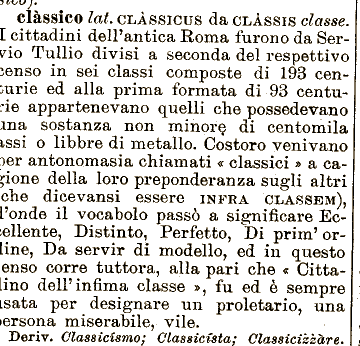 clàssico lat. CLÀSSICUS da CLÀSSIS classe.
I cittadini dell'antica Roma furono da Ser-
vio Tullio divisi a seconda del respettivo
censo in sei classi composte di 193 cen-
turie ed alla prima formata di 93 centu-
rie appartenevano quelli che possedevano
una sostanza non minore di centomila
assi o libbre di metallo. Costoro venivano
per antonomasia chiamati « classici » a ca-
gione della loro preponderanza sugli altri
(che dicevansi essere INFRA CLASSEM),
d'onde il vocabolo passò a significare Ec-
cellente, Distinto, Perfetto, Di prim' or-
dine, Da servir di modello, ed in questo
senso corre tuttora, alla pari che « Citta-
dino dell'infima classe », fu ed è sempre
usata per designare un proletario, una
persona miserabile, vile.
Deriv. Classicísmo; Classicísta; Classicizzàre.